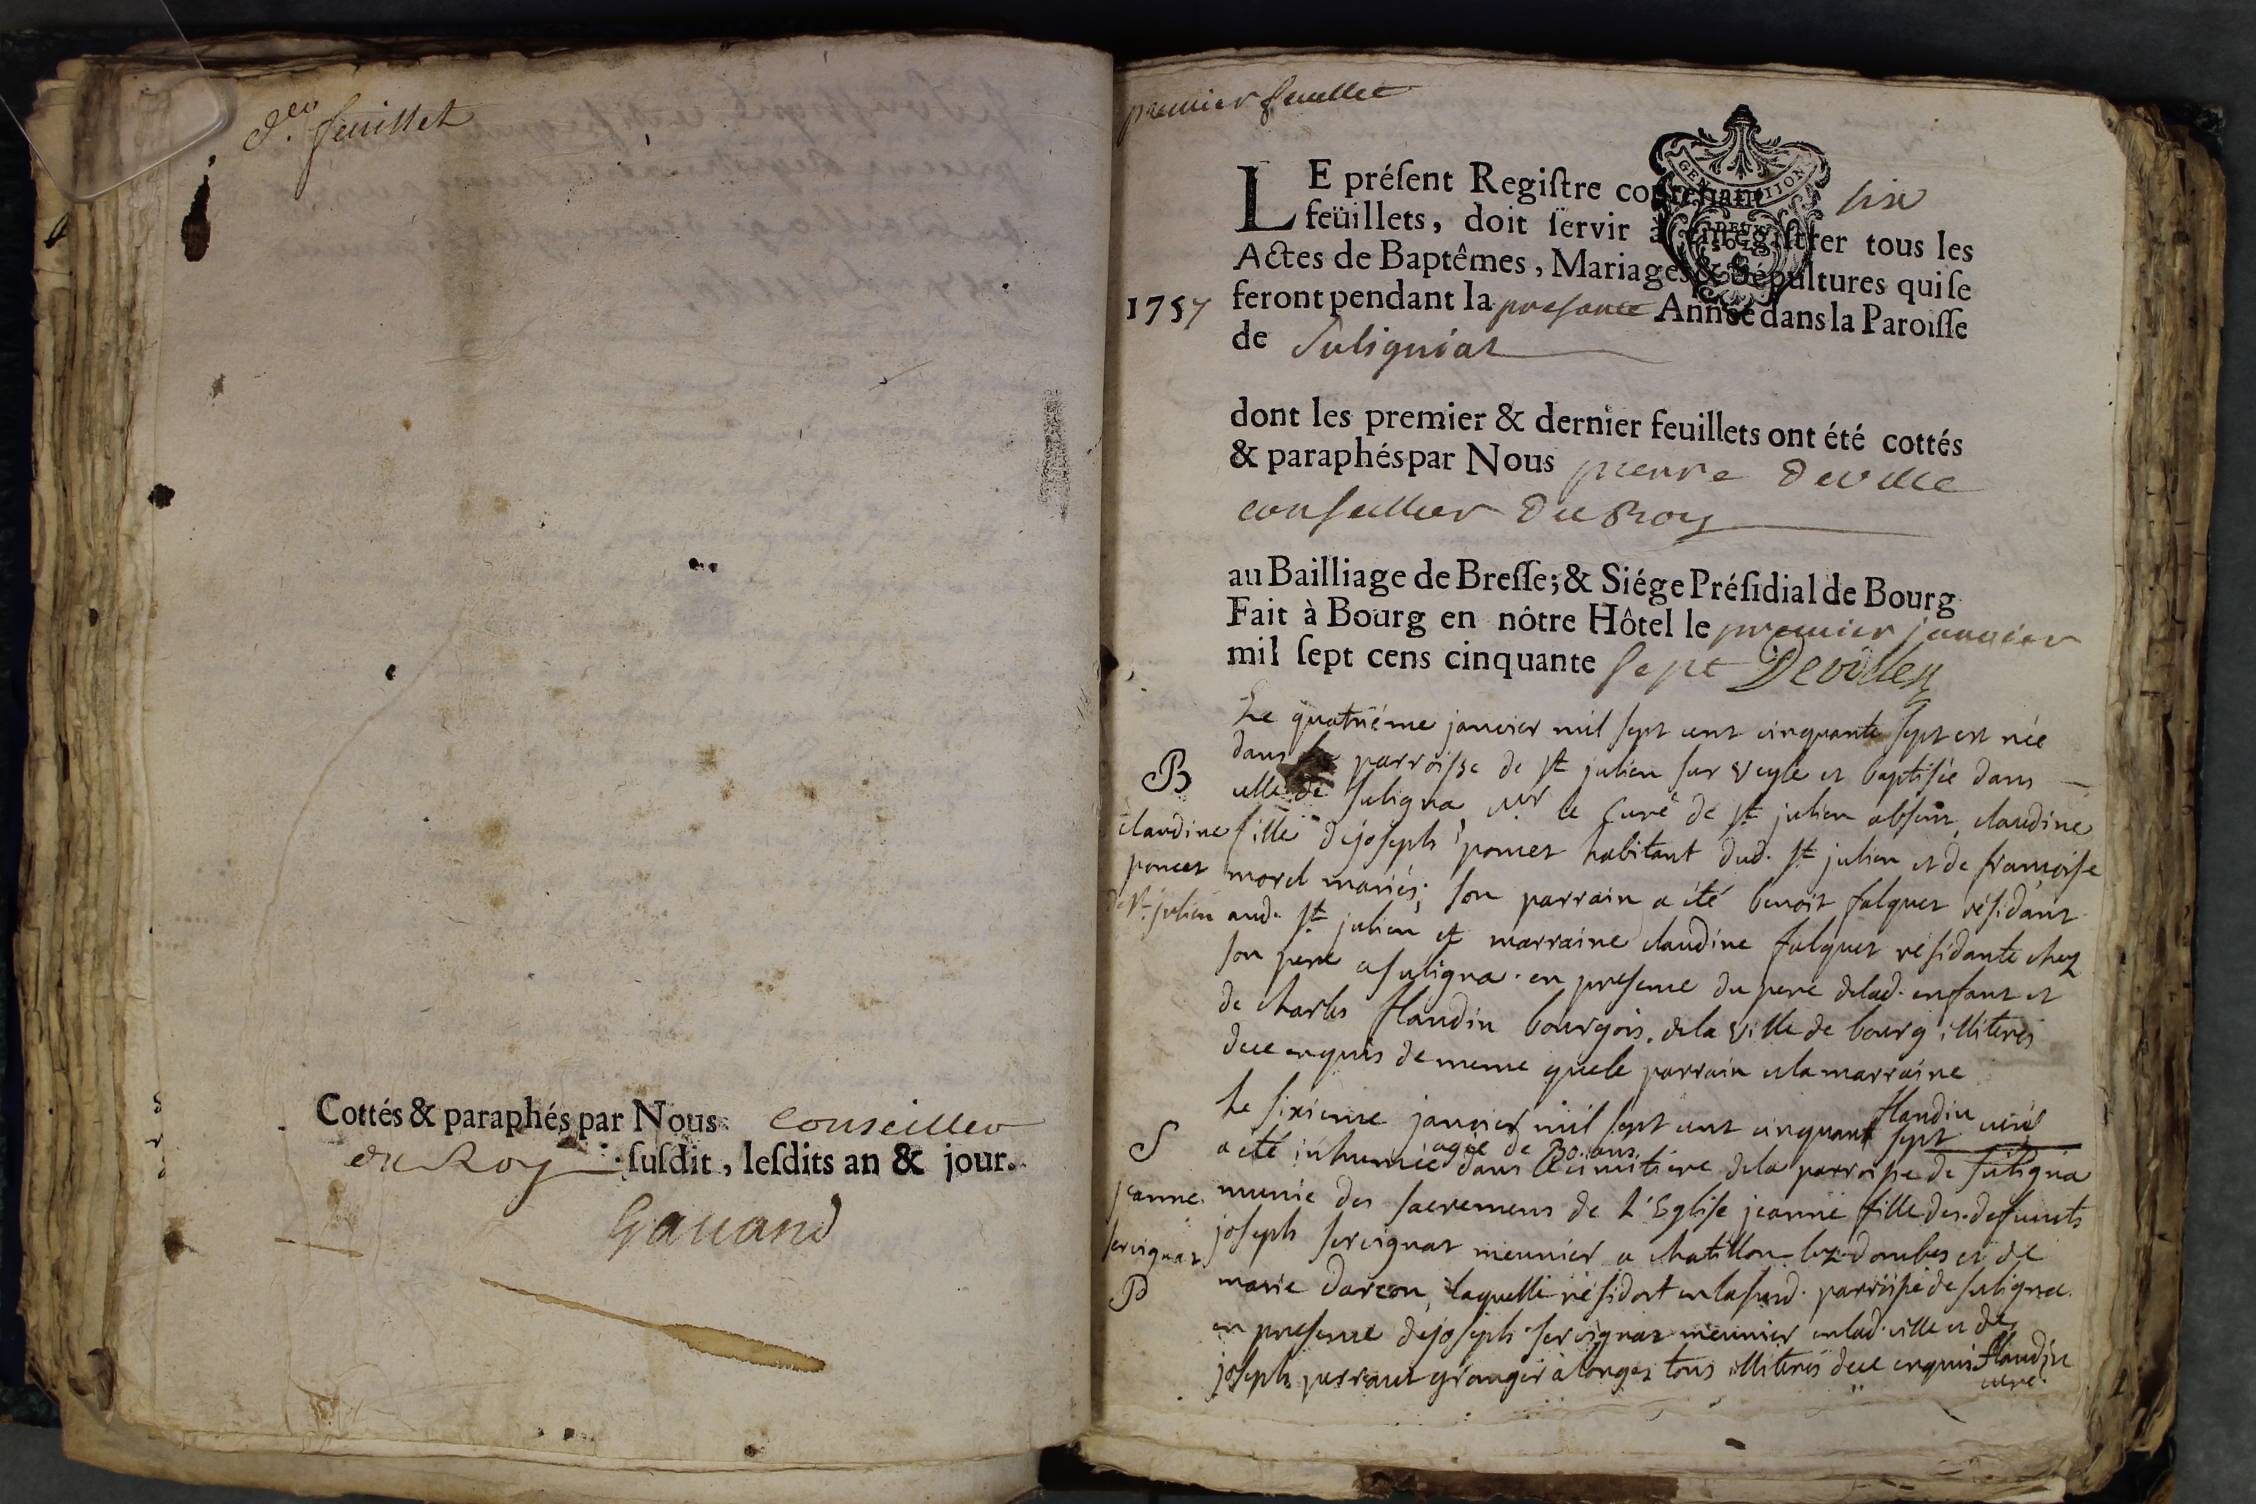 der feuillet
Cottés & paraphés par Nous conseiller
du Roy susdit, lesdits an & jour.
Gauand
premier feuillet
GEN DEUX SOLS
LE présent Registre contenant six
feüillets, doit servir à enregistrer tous les
Actes de Baptêmes, Mariages & Sépultures qui se
1757 feront pendant la presante Année dans la Paroisse
de Suligniat
dont les premier & dernier feuillets ont été cottés
& paraphés par Nous pierre Deville
conseiller du Roy
au Bailliage de Bresse; & Siége Présidial de Bourg
Fait à Bourg en nôtre Hôtel le premier janvier
mil sept cens cinquante sept Deville
Le quatriéme janvier mil sept cent cinquante sept est née
dans la parroisse de st julien sur veyle et baptisée dans
B celle de suligna, mr le curé de st julien absent, claudine
claudine fille de joseph poncet habitant dud. st julien et de francoise
poncet morel mariés; son parrain a été benoit falquet résidant
de st julien aud. st julien et marraine claudine falquet résidante chez
son pere a suligna. en presence du pere de lad. enfant et
de charles flandin bourgois de la ville de bourg illiterés
de ce enquis de meme que le parrain et la marraine
flandin curé
S Le sixieme janvier mil sept cent cinquante sept
agée de 30. ans
a eté inhumée dans le cimitiere de la parroisse de suligna
jeanne munie des sacremens de l'Eglise jeanne fille des defunts
servignat joseph servignat meunier a chatillon lez dombes et de
B marie darcon, laquelle résidoit en la susd. parroisse de suligna.
en presence de joseph servignat meunier en lad. ville et de
joseph perraut granger a longes tous illiterés de ce enquis flandin
curé